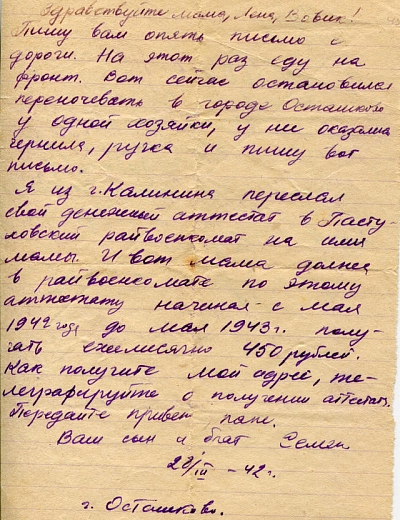 Здравствуйте мама, Лена, Вовик!
Пишу вам опять письмо с
дороги. На этот раз еду на
фронт. Вот сейчас остановился
переночевать в городе Осташкове
у одной хозяйки, у ни оказались
чернила, ручка и пишу вот
письмо.
Я из г. Калинина переслал
свой денежный аттестат в Пасту-
ловский райвоенкомат на имя
мамы. И вот мама должна
в райвоенкомате по этому
аттестату начиная с мая
1942 года до мая 1943 г. полу-
чать ежемесячно 450 рублей.
Как получите мой адрес, те-
леграфируйте о получении аттестата.
Передайте привет папе.
Ваш сын и брат Семен
27/III - 42 г.
г. Осташково.